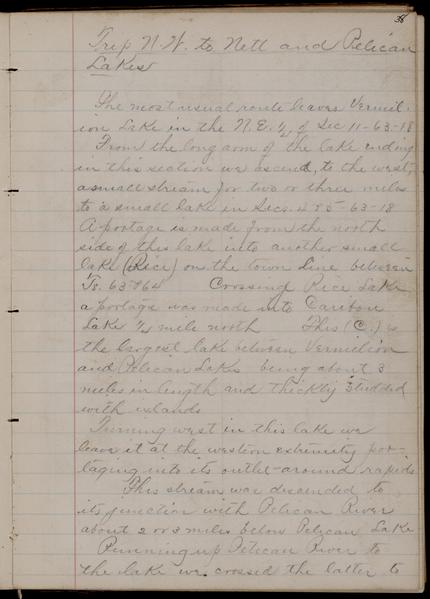 38
Trip N.W. to Nett and Pelican
Lakes
The most usual route leaves Vermil-
ion Lake in the N.E. 1/4 of Sec 11-63-18
From the long arm of the lake ending
in this section we ascend, to the west,
a small stream for two or three miles
to a small lake in Secs. 4 & 5-63-18
A portage is made from the north
side of this lake into another small
lake (Rice) on the town line between
Ts. 63 & 64 Crossing Rice Lake
a portage was made into Caribou
Lake 1/4 mile north This (C.) is
the largest lake between Vermilion
and Pelican Lakes being about 3
miles in length and thickly studded
with islands
Turning west in this lake we
leave it at the western extremity por-
taging into its outlet-around rapids
This stream was descended to
its junction with Pelican River
about 2 or 3 miles below Pelican Lake
Running up Pelican River to
the lake we crossed the latter to